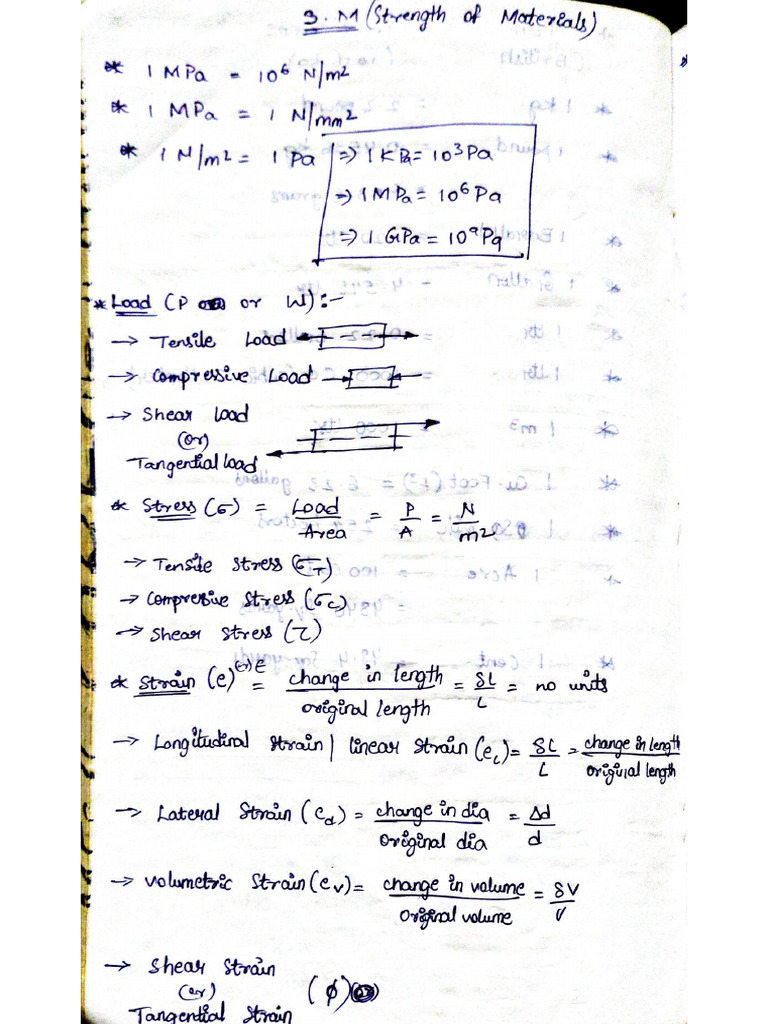 3. M (Strength of Materials)
* 1 MPa = 10⁶ N/m²
* 1 MPa = 1 N/mm²
* 1 N/m² = 1 Pa ⇒ 1 KPa = 10³ Pa
⇒ 1 MPa = 10⁶ Pa
⇒ 1 GPa = 10⁹ Pa
* Load (P or W):-
→ Tensile Load
→ Compressive Load
→ Shear load
(or)
Tangential load
* Stress (σ) = Load/Area = P/A = N/m²
→ Tensile stress (σT)
→ Compressive stress (σc)
→ Shear stress (τ)
* Strain (e) (or) ϵ = change in length/original length = δL/L = no units
→ Longitudinal strain / linear strain (eL) = δL/L = change in length/original length
→ Lateral strain (ed) = change in dia/original dia = Δd/d
→ volumetric strain (ev) = change in volume/original volume = δV/V
→ Shear strain
(or) (ϕ)
Tangential strain